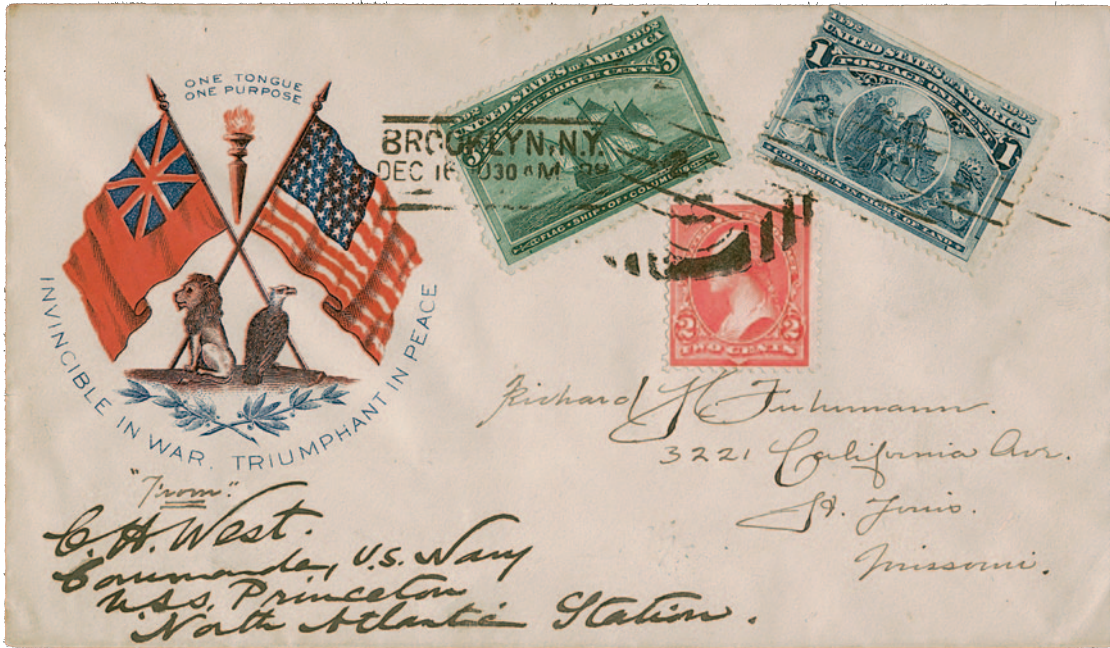 ONE TONGUE
ONE PURPOSE
INVINCIBLE IN WAR. TRIUMPHANT IN PEACE
BROOKLYN, N.Y.
DEC 16 30 AM 98
1492 1892
UNITED STATES OF AMERICA
POSTAGE THREE CENTS
3 3
FLAG SHIP OF COLUMBUS
1492 1892
UNITED STATES OF AMERICA
POSTAGE ONE CENT
1 1
COLUMBUS IN SIGHT OF LAND
2 2
TWO CENTS
Richard H. Fuhrmann.
3221 California Ave.
St. Louis.
Missouri.
"From"
C. H. West.
Commander, U.S. Navy
U.S.S. Princeton
North Atlantic Station.